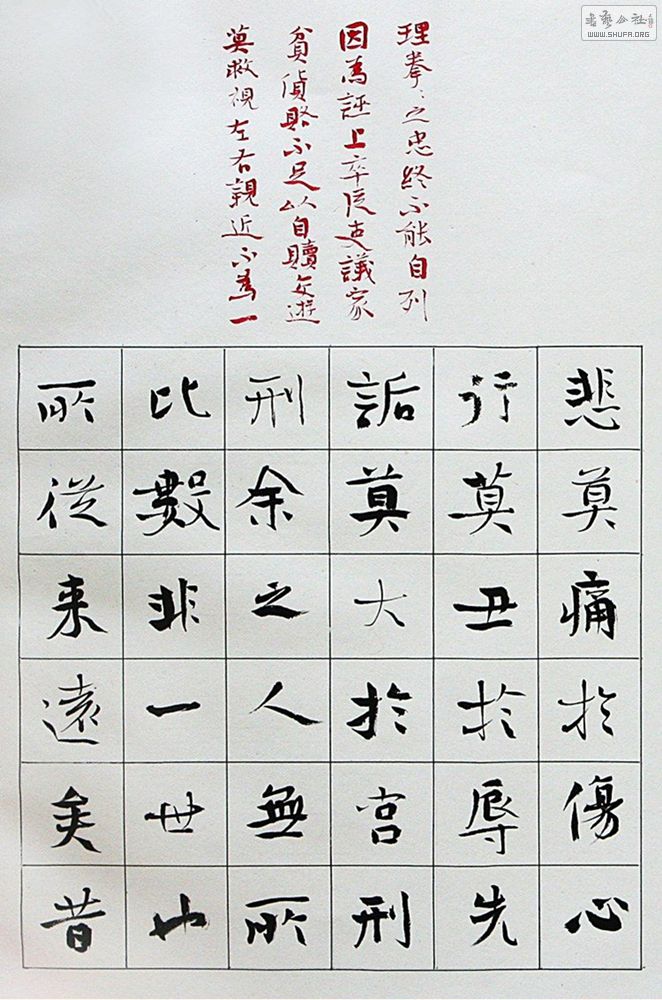 書艺公社
WWW.SHUFA.ORG
理拳〻之忠終不能自列
因為誣上卒従吏議家
貧貨賂不足以自贖交遊
莫救視左右親近不為一
悲莫痛於傷心
行莫丑於辱先
詬莫大於宮刑
刑余之人無所
比數非一世也
所従来遠矣昔